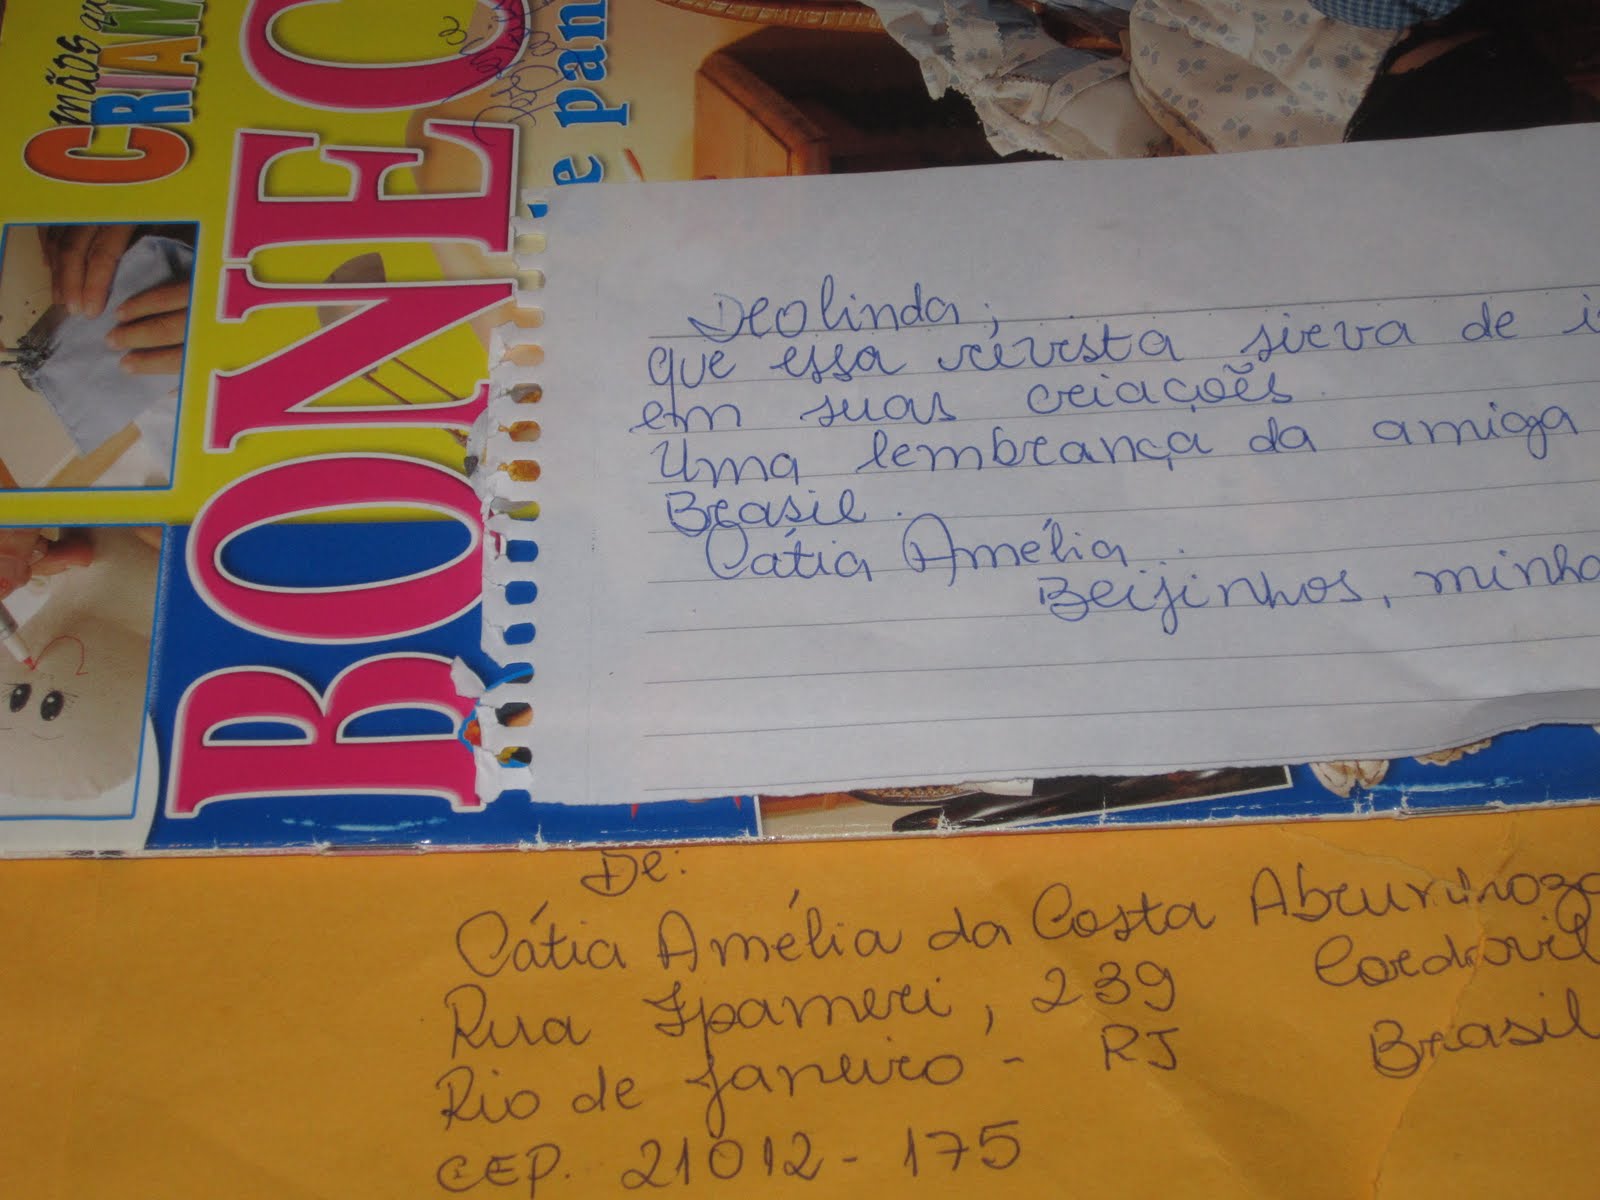 mãos que
CRIAM
BONEC
e pan
Deolinda;
que essa revista sirva de i
em suas criações.
Uma lembrança da amiga
Brasil.
Cátia Amélia.
Beijinhos, minha
De:
Cátia Amélia da Costa
Rua Ipameri, 239 Cordovil
Rio de Janeiro - RJ Brasil
CEP. 21012-175